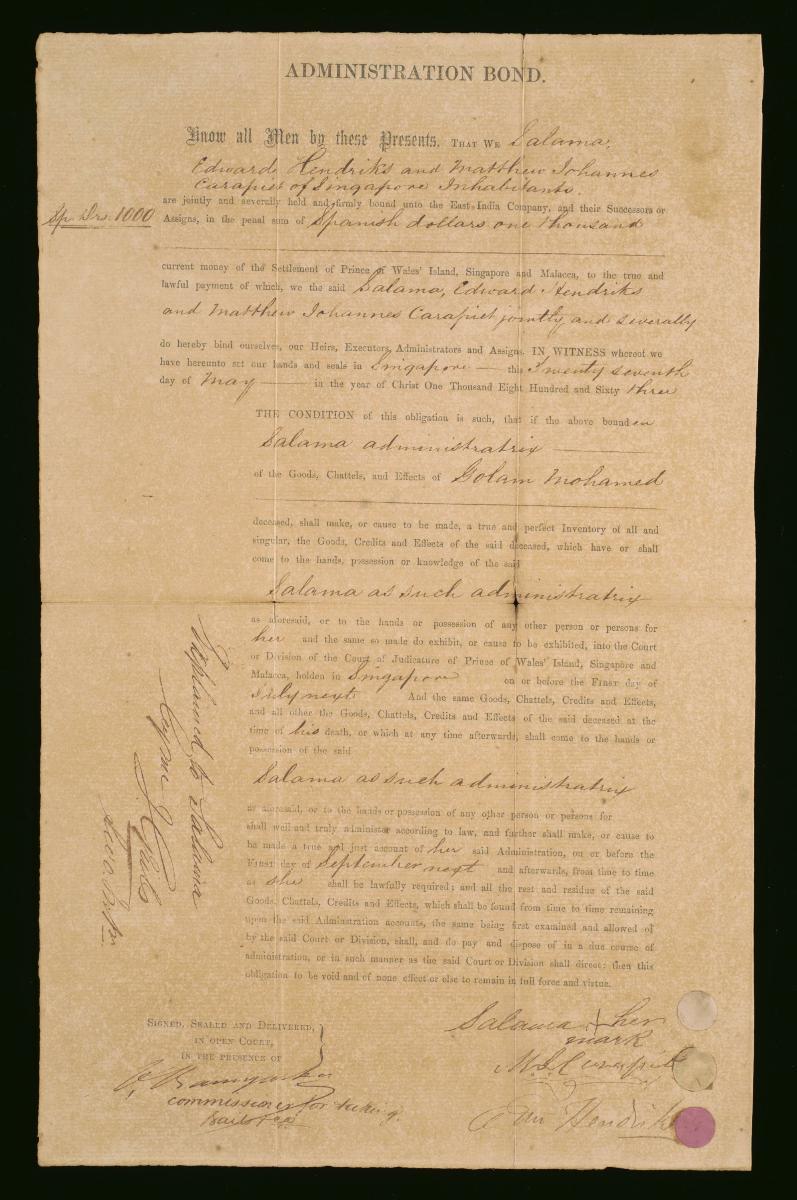 ADMINISTRATION BOND.
Know all Men by these Presents, THAT WE Salama,
Edward Hendriks and Matthew Johannes
Carapiet of Singapore Inhabitants.
are jointly and severally held and firmly bound unto the East India Company, and their Successors or
Sp. Drs. 1000
Assigns, in the penal sum of Spanish dollars one thousand
current money of the Settlement of Prince of Wales' Island, Singapore and Malacca, to the true and
lawful payment of which, we the said Salama, Edward Hendriks
and Matthew Johannes Carapiet jointly and severally
do hereby bind ourselves, our Heirs, Executors, Administrators and Assigns. IN WITNESS whereof we
have hereunto set our hands and seals in Singapore this Twenty seventh
day of May in the year of Christ One Thousand Eight Hundred and Sixty three
THE CONDITION of this obligation is such, that if the above bounden
Salama administratrix
of the Goods, Chattels, and Effects of Golam Mohamed
deceased, shall make, or cause to be made, a true and perfect Inventory of all and
singular, the Goods, Credits and Effects of the said deceased, which have or shall
come to the hands, possession or knowledge of the said
Salama as such administratrix
as aforesaid, or to the hands or possession of any other person or persons for
her and the same so made do exhibit, or cause to be exhibited, into the Court
or Division of the Court of Judicature of Prince of Wales' Island, Singapore and
Malacca, holden in Singapore on or before the FIRST day of
July next And the same Goods, Chattels, Credits and Effects,
and all other the Goods, Chattels, Credits and Effects of the said deceased at the
time of his death, or which at any time afterwards, shall come to the hands or
possession of the said
Salama as such administratrix
as aforesaid, or to the hands or possession of any other person or persons for
shall well and truly administer according to law, and further shall make, or cause to
be made a true and just account of her said Administration, on or before the
FIRST day of September next and afterwards, from time to time
as she shall be lawfully required; and all the rest and residue of the said
Goods, Chattels, Credits and Effects, which shall be found from time to time remaining
upon the said Administration accounts, the same being first examined and allowed of
by the said Court or Division, shall, and do pay and dispose of in a due course of
administration, or in such manner as the said Court or Division shall direct: then this
obligation to be void and of none effect or else to remain in full force and virtue.
Explained to Salama
by me
SIGNED, SEALED AND DELIVERED,
IN OPEN COURT,
IN THE PRESENCE OF
commissioner for taking
Bail
Salama her
mark
M. J. Carapiet
Edw Hendriks